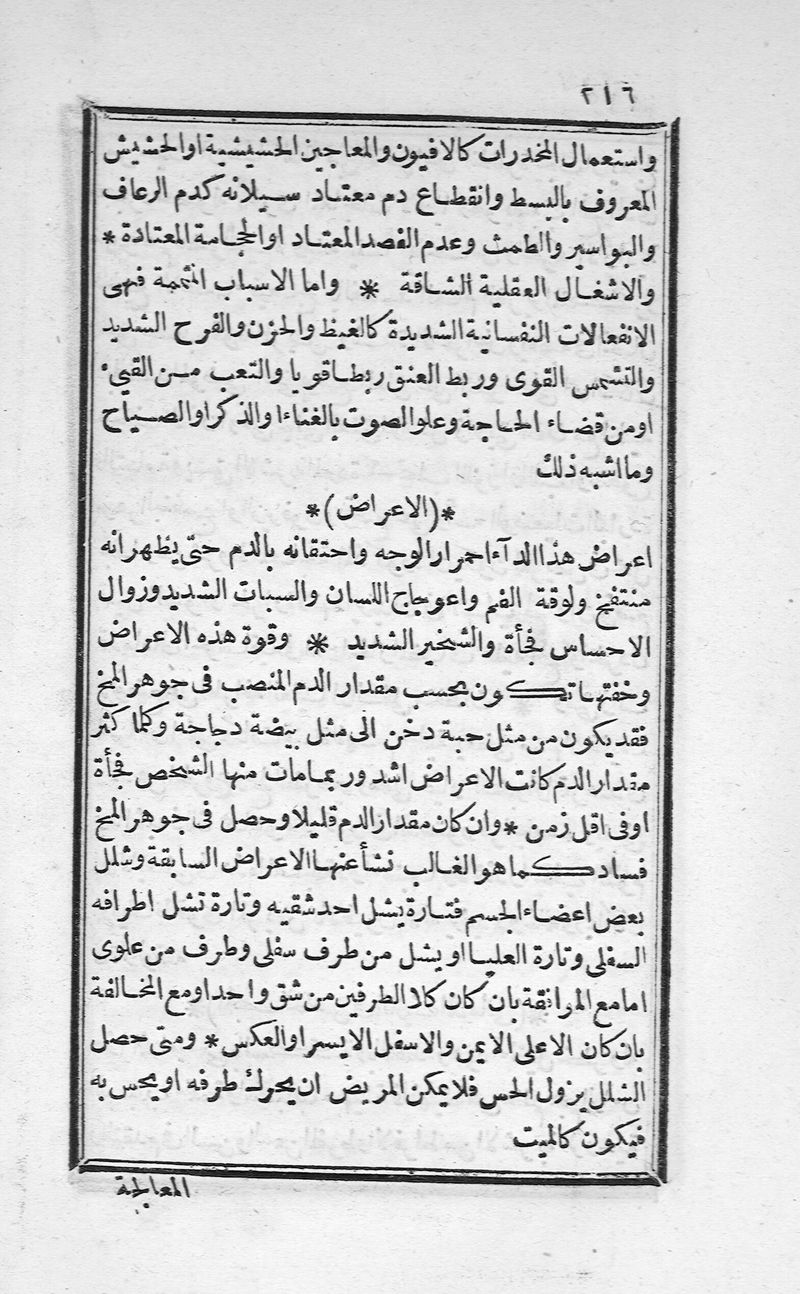 ٢١٦
واستعمال المخدرات كالافيون والمعاجين الحشيشية او الحشيش
المعروف بالبسط وانقطاع دم معتاد سيلانه كدم الرعاف
والبواسير والطمث وعدم الفصد المعتاد او الحجامة المعتادة *
والاشغال العقلية الشاقة * واما الاسباب المتممة فهى
الانفعالات النفسانية الشديدة كالغيظ والحزن والفرح الشديد
والتشمس القوى وربط العنق ربطا قويا والتعب من القىء
او من قضاء الحاجة وعلو الصوت بالغناء او الذكر او الصياح
وما اشبه ذلك
*(الاعراض)*
اعراض هذا الدآء احمرار الوجه واحتقانه بالدم حتى يظهر انه
منتفخ ولوقة الفم واعوجاج اللسان والسبات الشديد وزوال
الاحساس فجأة والشخير الشديد * وقوة هذه الاعراض
وخفتها تكون بحسب مقدار الدم المنصب فى جوهر المخ
فقد يكون من مثل حبة دخن الى مثل بيضة دجاجة وكلما كثر
مقدار الدم كانت الاعراض اشد وربما مات منها الشخص فجأة
او فى اقل زمن * وان كان مقدار الدم قليلا وحصل فى جوهر المخ
فساد كما هو الغالب نشأ عنها الاعراض السابقة وشلل
بعض اعضاء الجسم فتارة يشل احد شقيه وتارة تشل اطرافه
السفلى وتارة العليا او يشل من طرف سفلى وطرف من علوى
اما مع الموافقة بان كان كلا الطرفين من شق واحد او مع المخالفة
بان كان الاعلى الايمن والاسفل الايسر او العكس * ومتى حصل
الشلل يزول الحس فلا يمكن المريض ان يحرك طرفه او يحس به
فيكون كالميت
المعالجة